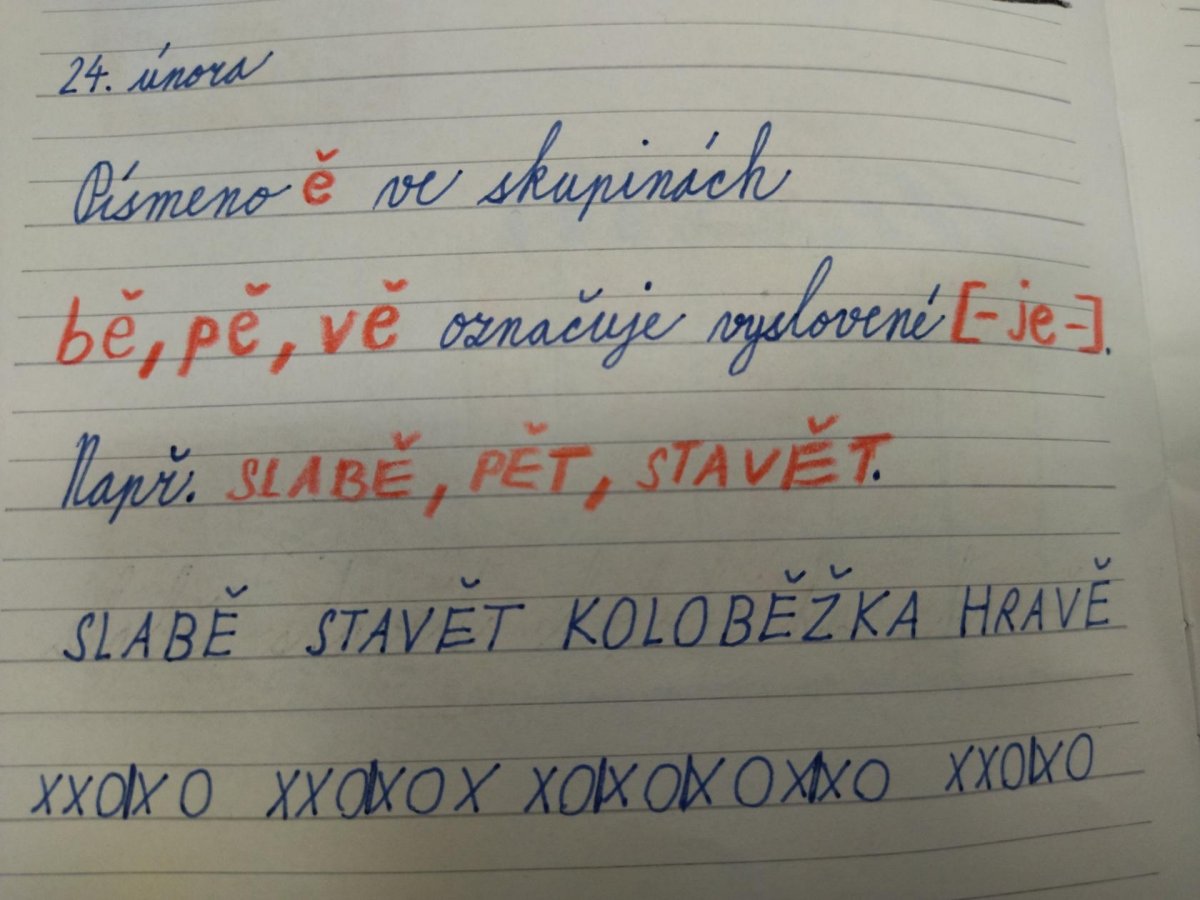 24. února
Písmeno ě ve skupinách
bě, pě, vě označuje vyslovené [-je-].
Např. SLABĚ, PĚT, STAVĚT.
SLABĚ STAVĚT KOLOBĚŽKA HRAVĚ
XXO|XO XXO|XOX XO|XO|XOX|XO XXO|XO